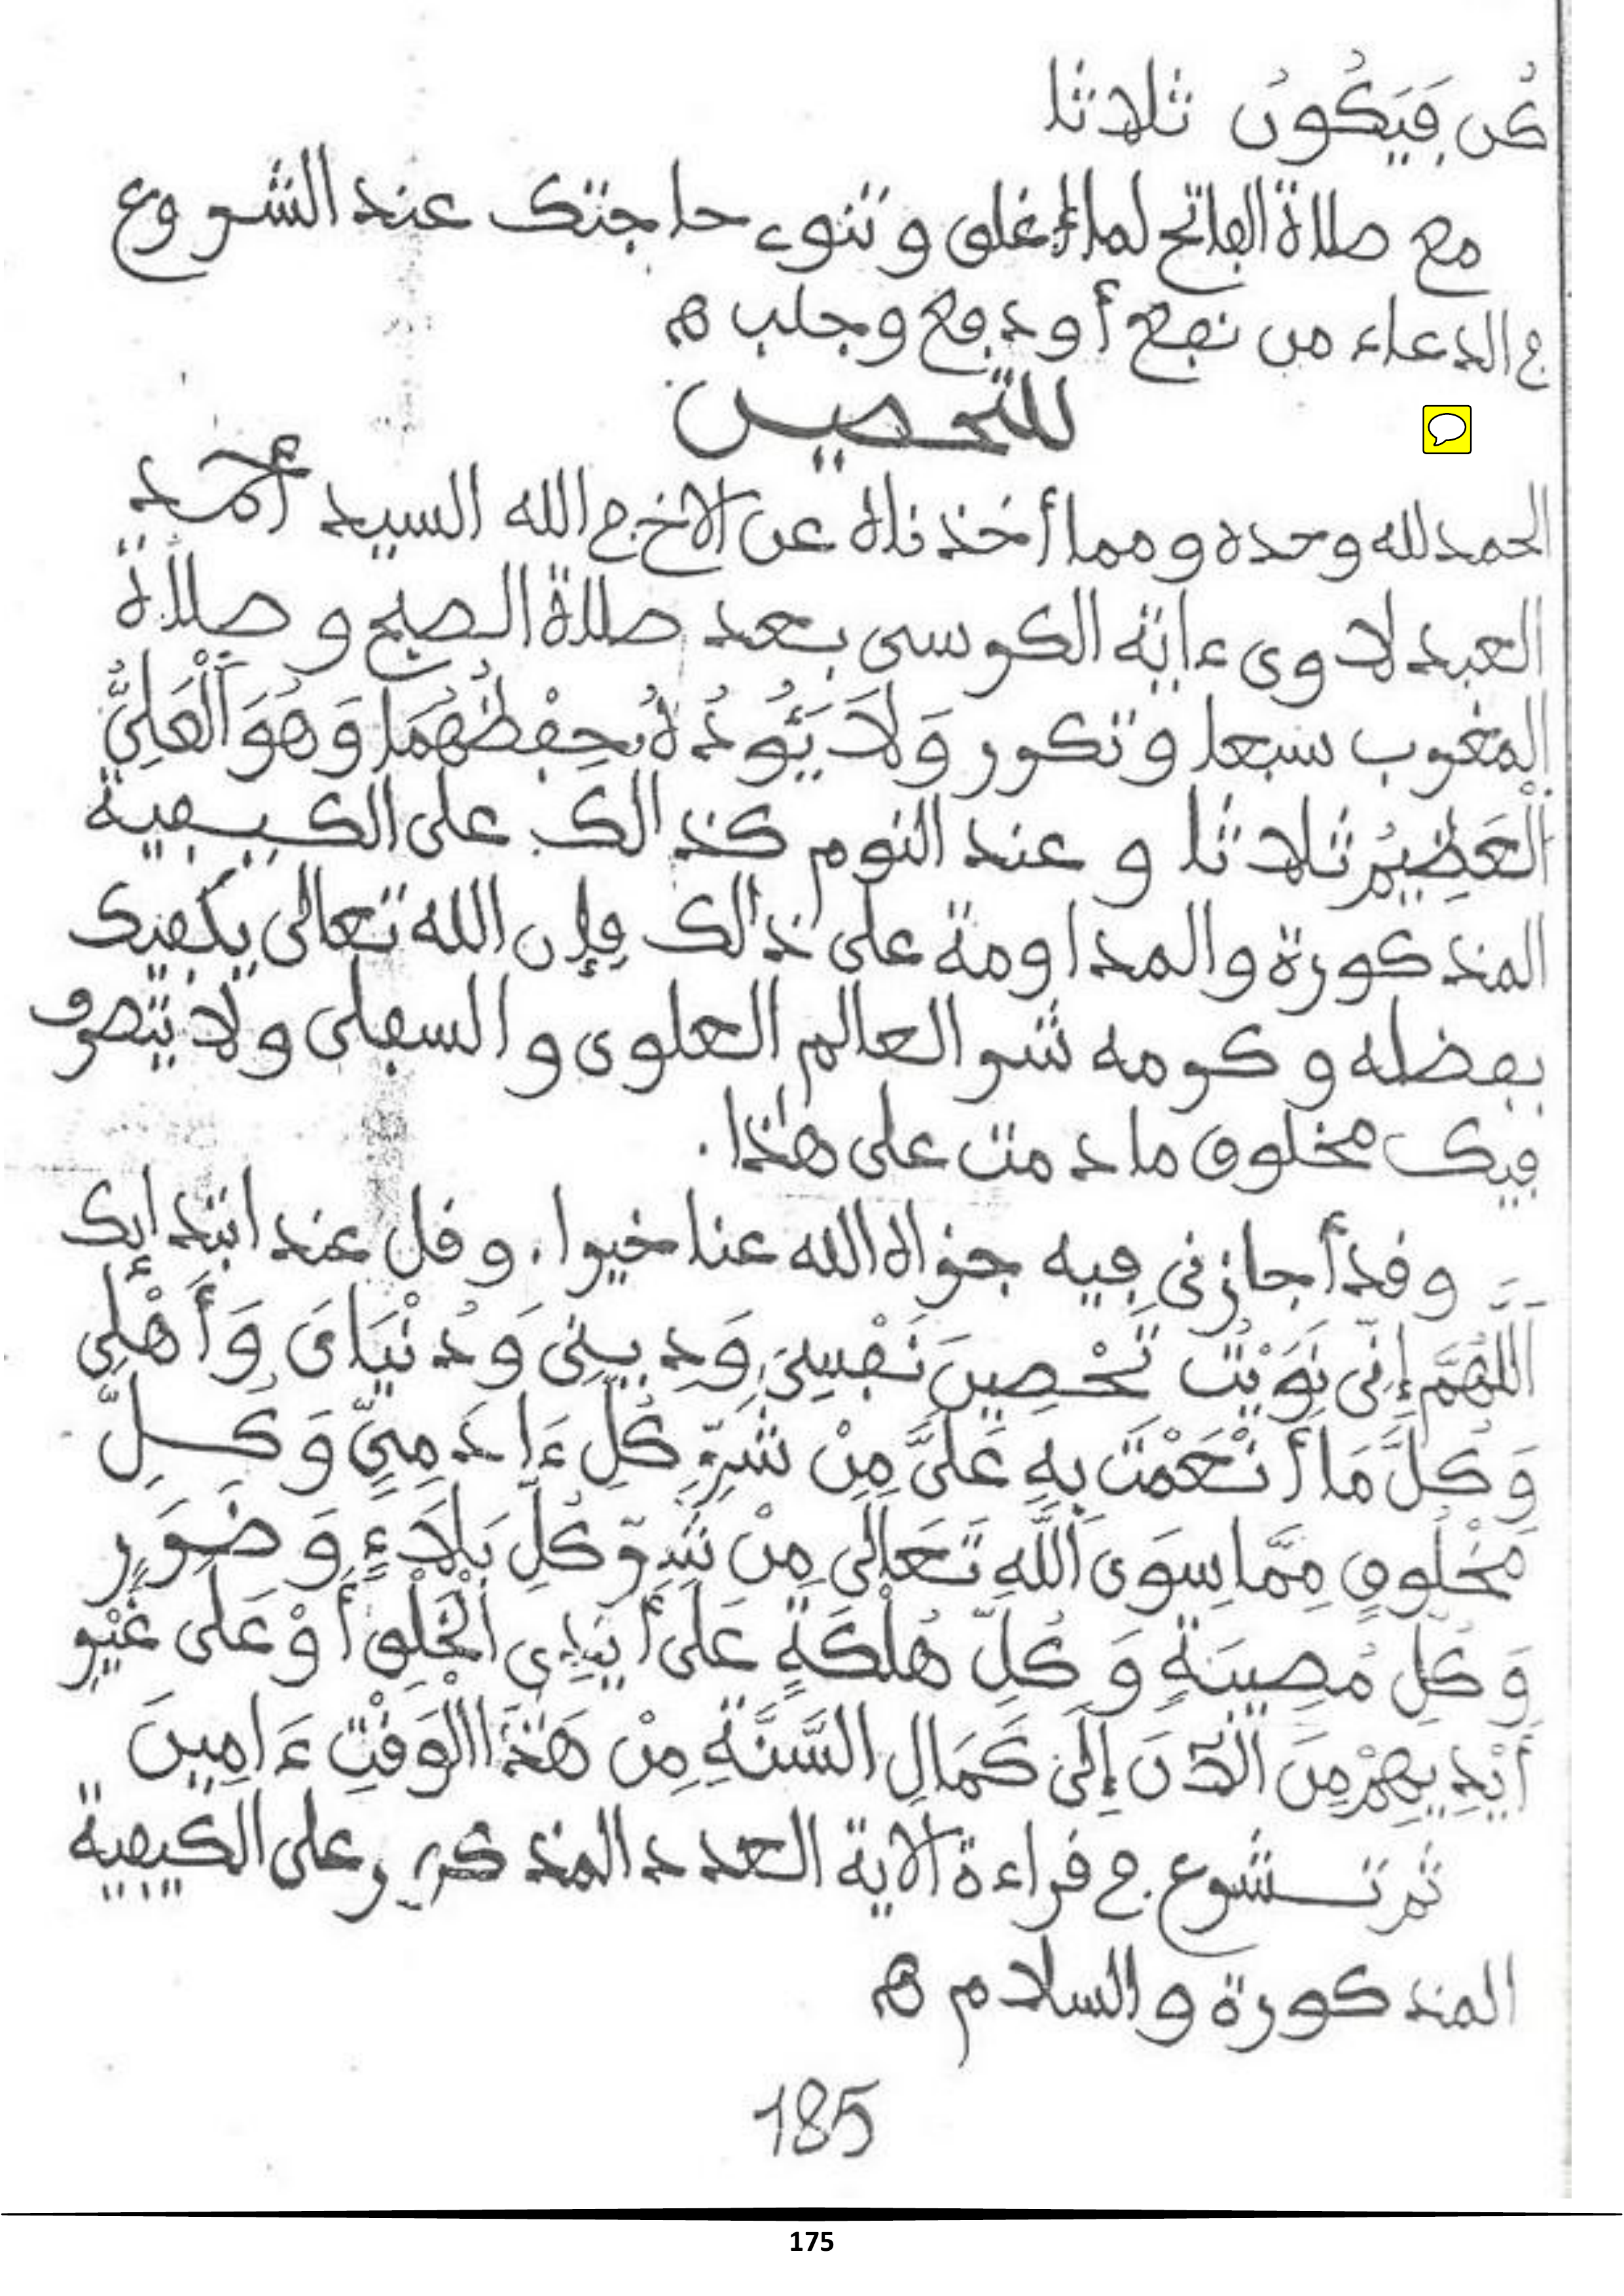 كُن فَيَكُونُ ثلاثا
مع صلاة الفاتح لما أغلق وتنوى حاجتك عند الشروع
في الدعاء من نفع أو دفع وجلب ه
للتحصين
الحمد لله وحده ومما أخذناه عن الاخ في الله السيد أحمد
العبدلاوى ءاية الكرسى بعد صلاة الصبح وصلاة
المغرب سبعا وتكرر وَلاَ يَئُودُهُ حِفْظُهُمَا وَهُوَ اَلْعَلِيُّ
اَلْعَظِيمُ ثلاثا وعند النوم كذالك على الكيفية
المذكورة والمداومة على ذالك فإن الله تعالى يكفيك
بفضله وكرمه شر العالم العلوى والسفلى ولا يتصرف
فيك مخلوق ما دمت على هذا.
وقد أجازنى فيه جزاه الله عنا خيرا. وقل عند ابتدائك
اَللَّهُمَّ إِنِّى نَوَيْتُ تَحْصِينَ نَفْسِى وَدِينِى وَدُنْيَاىَ وَأَهْلِى
وَكُلَّ مَا أَنْعَمْتَ بِهِ عَلَىَّ مِنْ شَرِّ كُلِّ ءَادَمِىٍّ وَكُلِّ
مَخْلُوقٍ مِمَّا سِوَى اَللَّهِ تَعَالَى مِنْ شَرِّ كُلِّ بَلاَءٍ وَضَرَرٍ
وَكُلِّ مُصِيبَةٍ وَكُلِّ هَلْكَةٍ عَلَى أَيْدِى اَلْخَلْقِ أَوْ عَلَى غَيْرِ
أَيْدِيهِمْ مِنَ اَلآنَ إِلَى كَمَالِ السَّنَةِ مِنْ هَذَا الْوَقْتِ ءَامِينَ
ثم تشرع في قراءة الاية العدد المذكور على الكيفية
المذكورة والسلام ه
185
175